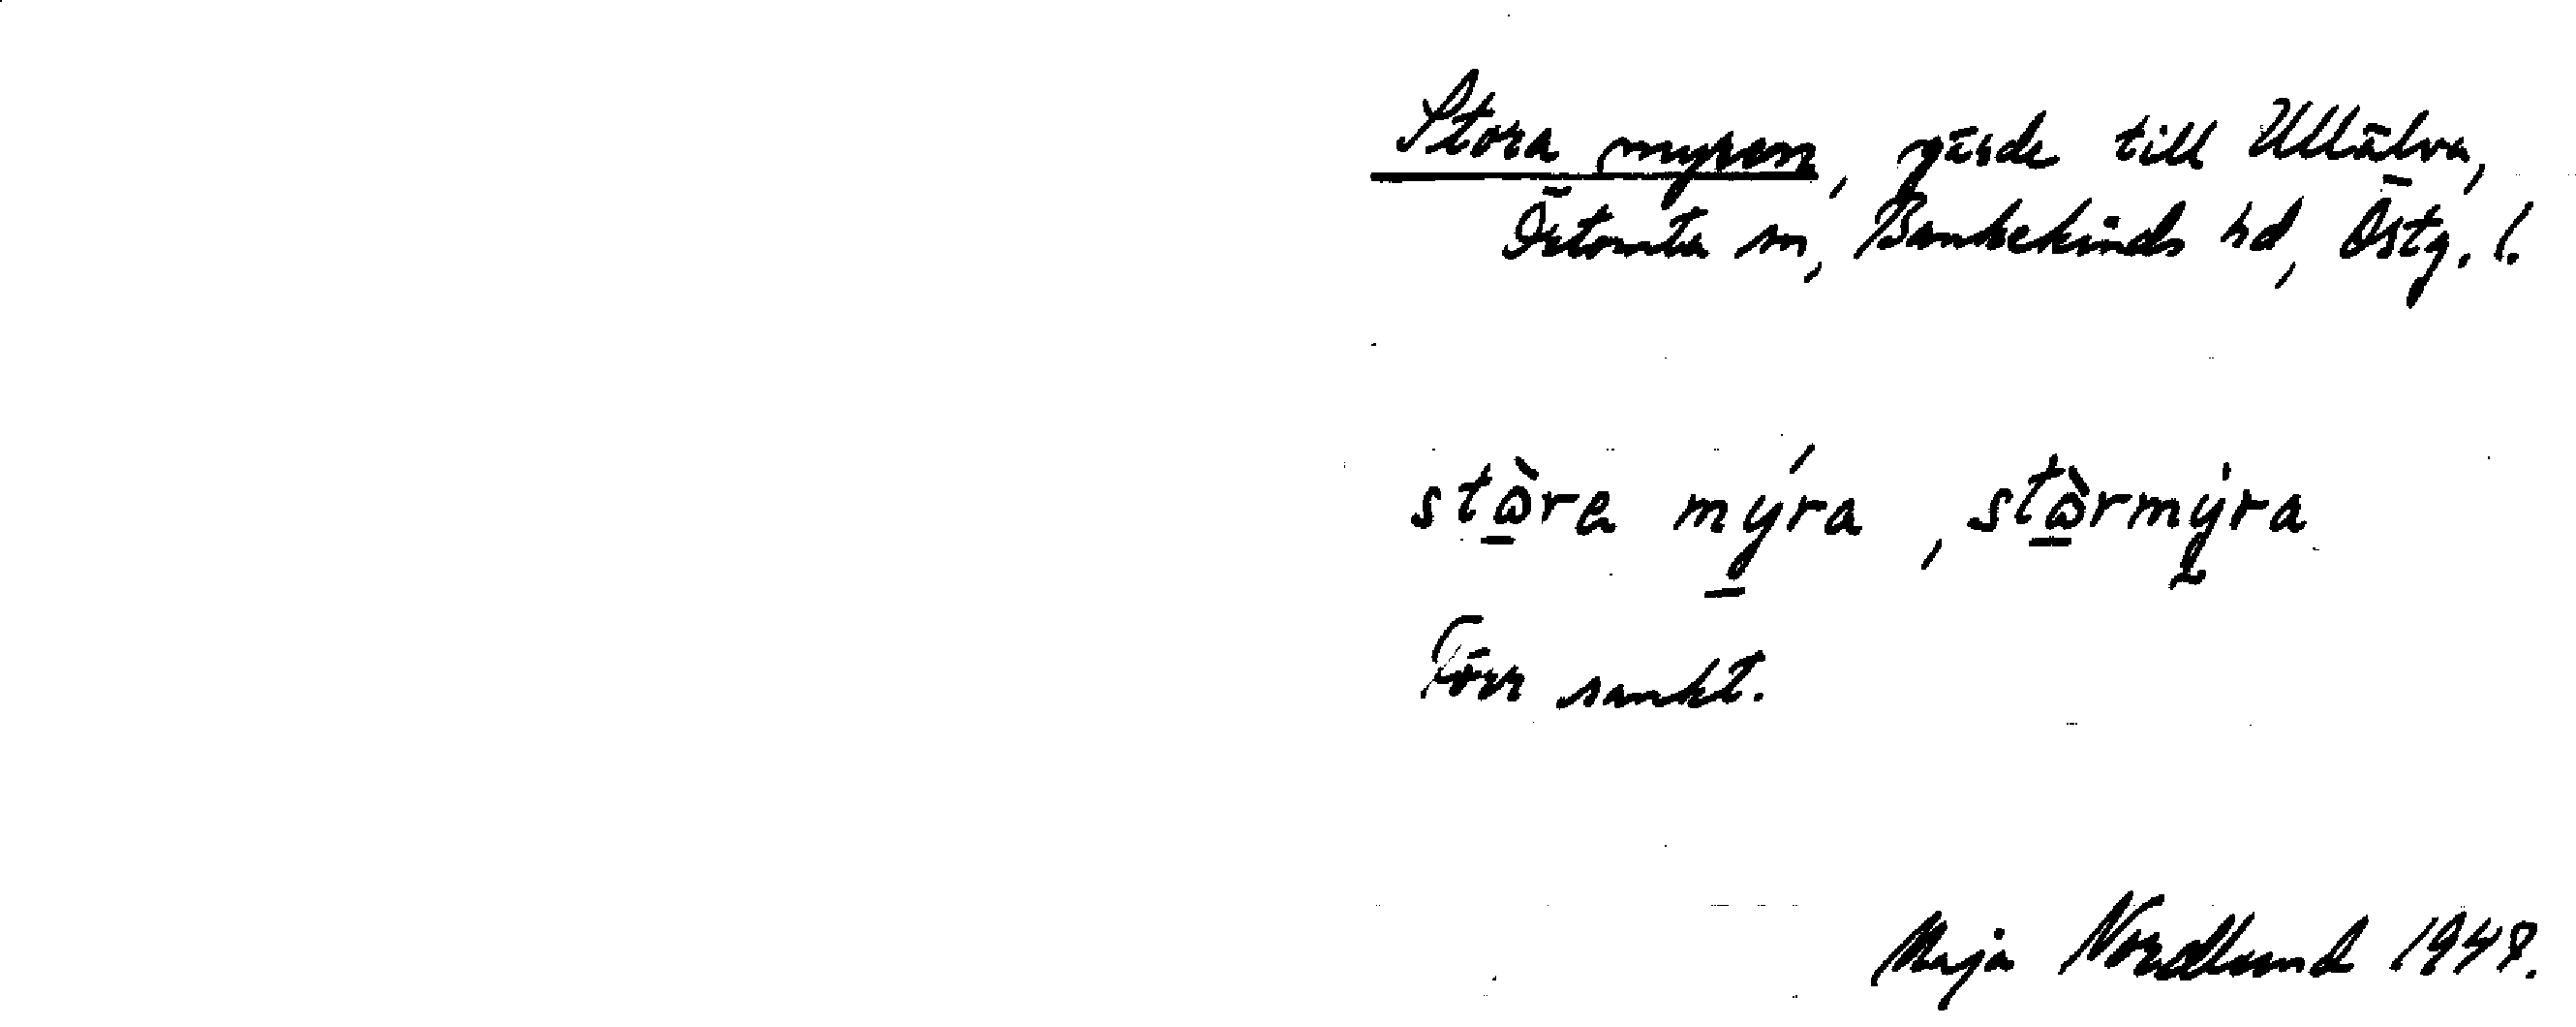 Stora myren, gärde till Ullälva,
Örtomta sn, Bankekinds hd, Östg. l.
stὼre mýra, stὼrmẏra
Förr sankt.
Maja Nordlund 1948.